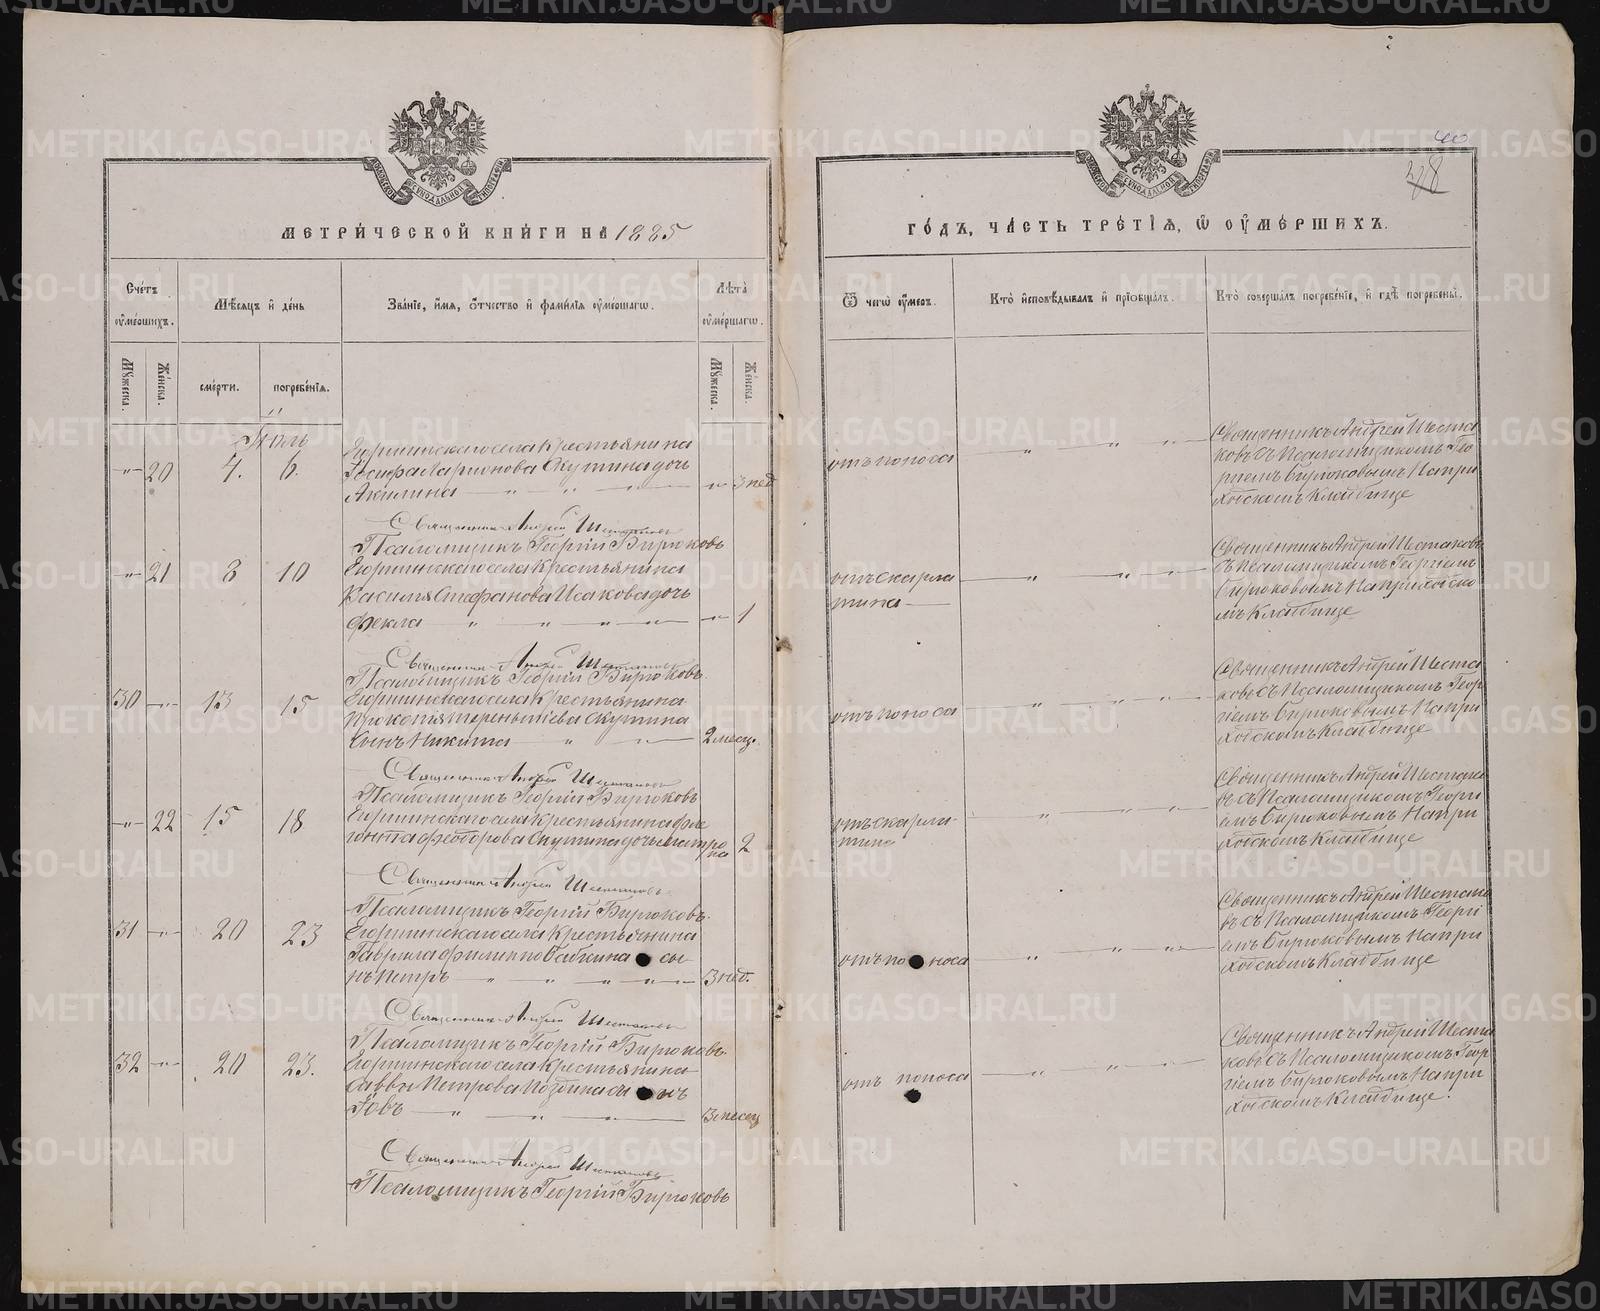 МЕТРИ́ЧЕСКОЙ КНИ́ГИ НА 1885
Сче́тъ ᲂу҆ме́ршихъ.
Мꙋ́жеска.
Же́нска.
Мѣ́сяцъ и҆ де́нь
сме́рти.
погребе́нїѧ.
Зва́нїе, и҆́мѧ, ѻ҆́тчество и҆ фами́лїѧ ᲂу҆ме́ршагѡ.
Лѣ́та ᲂу҆ме́ршагѡ.
Мꙋ́жеска.
Же́нска.
Іюль
„ 20 4. 6.
Егоршинскаго села крестьянина
Іосифа Ларионова Скутина дочь
Акилина „ „ „ 3 нед
Священникъ Андрей Шестаковъ
Псаломщикъ Георгій Бирюковъ
„ 21 8 10
Егоршинскаго села крестьянина
Василія Стефанова Исакова дочь
Фекла „ „ „ „ „ 1
Священникъ Андрей Шестаковъ
Псаломщикъ Георгій Бирюковъ
30 „ 13 15
Егоршинскаго села крестьянина
Прокопія Терентьева Скутина
сынъ Никита „ „ 2 месц.
Священникъ Андрей Шестаковъ
Псаломщикъ Георгій Бирюковъ
„ 22 15 18
Егоршинскаго села крестьянина Фле
гонта Феодорова Скутина дочь Матро
на 2
Священникъ Андрей Шестаковъ
Псаломщикъ Георгій Бирюковъ.
31 „ 20 23
Егоршинскаго села крестьянина
Гаврила Филиппо Бабкина сы
нъ Петръ „ „ „ „ „ 3 нед.
Священникъ Андрей Шестаковъ
Псаломщикъ Георгій Бирюковъ.
32 „ 20 23.
Егоршинскаго села крестьянина
Саввы Петрова сынъ
Іовъ „ „ „ 3 месец
Священникъ Андрей Шестаковъ
Псаломщикъ Георгій Бирюковъ
40
ГО́ДЪ, ЧА́СТЬ ТРЕ́ТЇѦ, Ѡ҆ ОУ҆МЕ́РШИХЪ.
Ѿ чегѡ̀ ᲂу҆́меръ.
Кто̀ и҆сповѣ́дывалъ и҆ прїѡбща́лъ.
Кто̀ соверша́лъ погребе́нїе, и҆ гдѣ̀ погребены̀.
отъ поноса „ „ „
Священникъ Андрей Шеста
ковъ съ Псаломщикомъ Геор
гиемъ Бирюковымъ На при
ходскомъ Кладбище
отъ скарла
тина „ „ „
Священникъ Андрей Шестаковъ
съ Псаломщикомъ Георгіемъ
Бирюковымъ На приходско
мъ Кладбище
отъ поноса „ „ „
Священникъ Андрей Шеста
ковъ съ Псаломщикомъ Геор
гіемъ Бирюковымъ На при
ходскомъ Кладбище
отъ скарла-
тина „ „ „
Священникъ Андрей Шестако
въ съ Псаломщикомъ Георги
емъ Бирюковымъ На при
ходскомъ Кладбище
отъ поноса „ „ „
Священникъ Андрей Шестако
въ съ Псаломщикомъ Георгі
емъ Бирюковымъ На при
ходскомъ Кладбище
отъ поноса „ „ „
Священникъ Андрей Шеста
ковъ съ Псаломщикомъ Геор
гіемъ Бирюковымъ На при
ходскомъ Кладбище.
METRIKI.GASO-URAL.RU